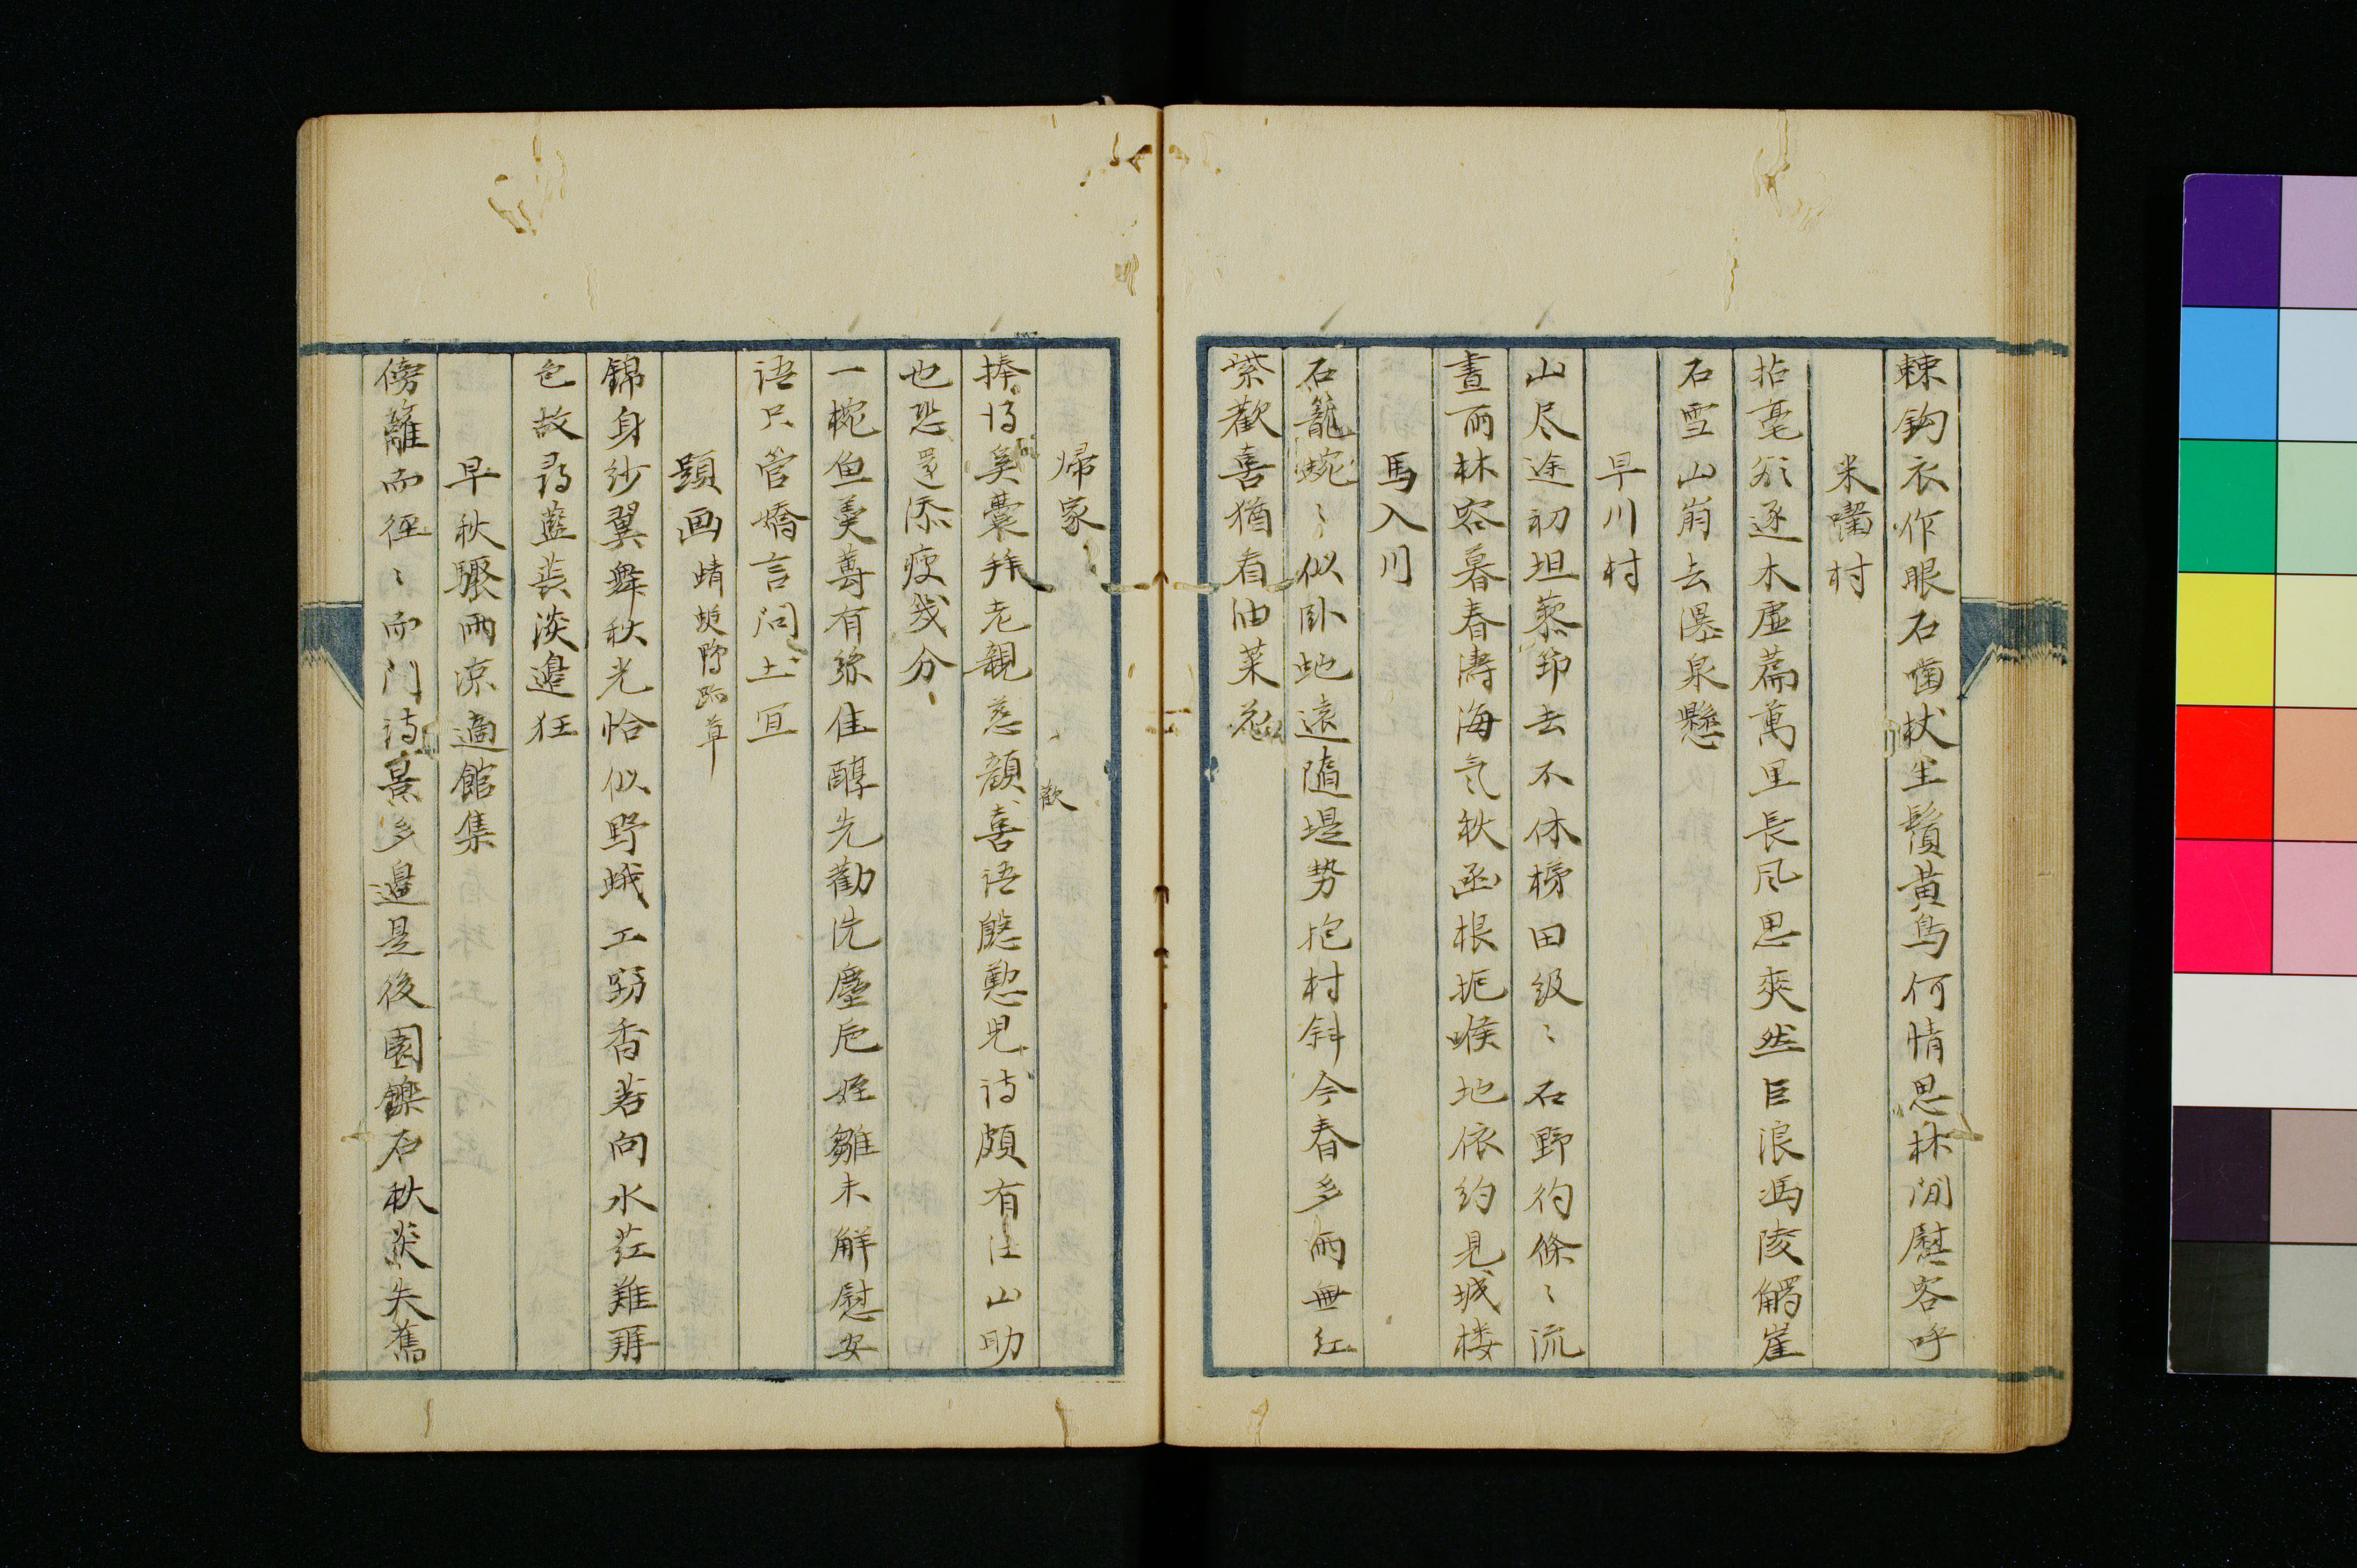 棘鈎衣作眼石齒杖生鬚黄鳥何情思林間慰客呼
米囓村
拈毫欲逐木虚篇萬里長风思爽然巨浪馮陵觸崖
石雪山崩去瀑泉懸
早川村
山尽途初坦藜節去不休榜田级〻石野彴條〻流
晝雨林容暮春濤海気秋函根扼喉地依約見城楼
馬入川
石籠蜿〻似臥蛇遠隨堤势抱村斜今春多雨無红
紫歡喜猶看油菜花
帰家
捧得奚囊拜老親慈顔喜语慇懃児诗頗有江山助
歡
也恐還添瘦幾分
一椀魚羹蓴有絲佳醇先勸洗塵卮姪雛未解慰安
语只管嬌言问土宜
題画蜻蜓鴨跖草
錦身纱翼舞秋光恰似野蛾工窃香若向水荭難辨
色故尋藍裳淡邊狂
早秋驟雨凉適館集
傍籬而徑〻而门诗景多邉是後園鑠石秋炎失舊